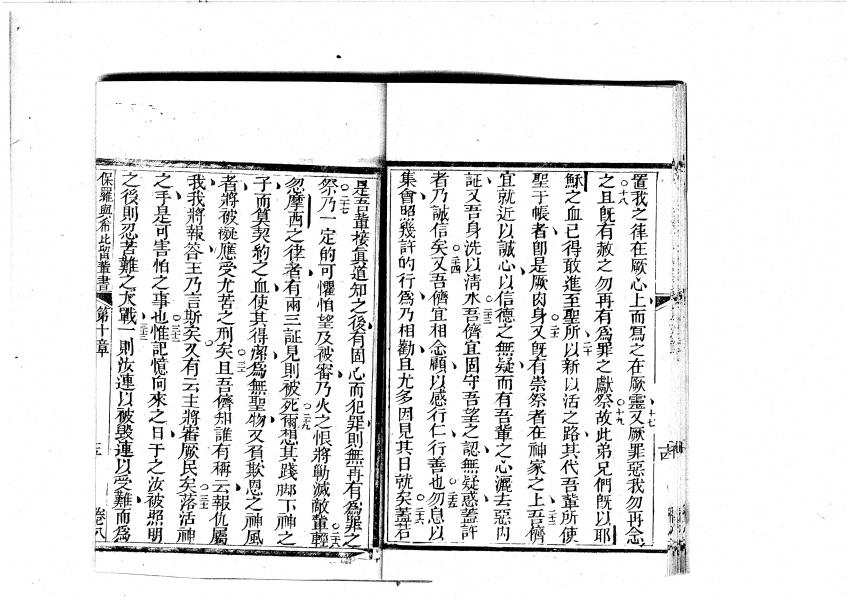 置我之律在厥心上而寫之在厥靈又厥罪惡我勿再念
之且既有赦之勿再有爲罪之獻祭故此弟兄們既以耶
穌之血已得敢進至聖所以新以活之路其代吾輩所使
聖于帳者即是厥肉身又既有崇祭者在神家之上吾儕
宜就近以誠心以信德之無疑而有吾輩之心灑去惡內
証又吾身洗以清水吾儕宜固守吾望之認無疑惑蓋許
者乃誠信矣又吾儕宜相念顧以感行仁行善也勿息以
集會照幾許的行爲乃相勸且尤多因見其日就矣蓋若
是吾輩接眞道知之後有固心而犯罪則無再有爲罪之
祭乃一定的可懼怕望及被審乃火之恨將勦滅敵輩輕
忽摩西之律者有兩三証見則被死爾想其踐脚下神之
子而算契約之血使其得潔爲無聖物又負欺恩之神風
者將被擬應受尤苦之刑矣且吾儕知誰有稱云報仇屬
我我將報答主乃言斯矣又有云主將審厥民矣落活神
之手是可害怕之事也惟記憶向來之日于之汝被照明
之後則忍苦難之大戰一則汝連以被毀連以受難而爲
保羅與希比留輩書 第十章 卷八